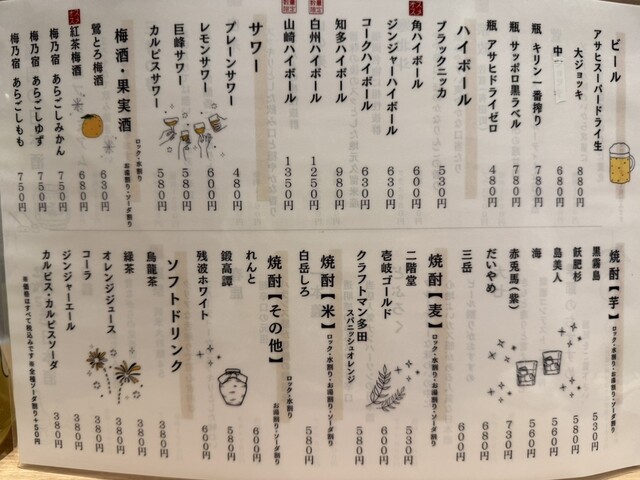 ビール
アサヒスーパードライ生
大ジョッキ 880円
中 680円
瓶 キリン一番搾り 780円
瓶 サッポロ黒ラベル 780円
瓶 アサヒドライゼロ 480円
ハイボール
ブラックニッカ 530円
角ハイボール 600円
ジンジャーハイボール 630円
コークハイボール 630円
知多ハイボール 980円
白州ハイボール 1250円
山崎ハイボール 1350円
サワー
プレーンサワー 480円
レモンサワー 600円
巨峰サワー 580円
カルピスサワー 580円
梅酒・果実酒
ロック・水割り
お湯割り・ソーダ割り
鶯とろ梅酒 630円
紅茶梅酒 680円
梅乃宿 あらごしみかん 750円
梅乃宿 あらごしゆず 750円
梅乃宿 あらごしもも 750円
焼酎【芋】
ロック・水割り・お湯割り・ソーダ割り
黒霧島 530円
飫肥杉 580円
島美人 560円
海 560円
赤兎馬(紫) 730円
だいやめ 680円
三岳 600円
焼酎【麦】
ロック・水割り・お湯割り・ソーダ割り
二階堂 530円
壱岐ゴールド 600円
クラフトマン多田
スパニッシュオレンジ 580円
焼酎【米】
ロック・水割り・お湯割り・ソーダ割り
白岳しろ 580円
焼酎【その他】
ロック・水割り
お湯割り・ソーダ割り
れんと 600円
鍛高譚 580円
残波ホワイト 600円
ソフトドリンク
烏龍茶 380円
緑茶 380円
オレンジジュース 380円
コーラ 380円
ジンジャーエール 380円
カルピス・カルピスソーダ 380円
※価格はすべて税込みです ※全種ソーダ割り+50円